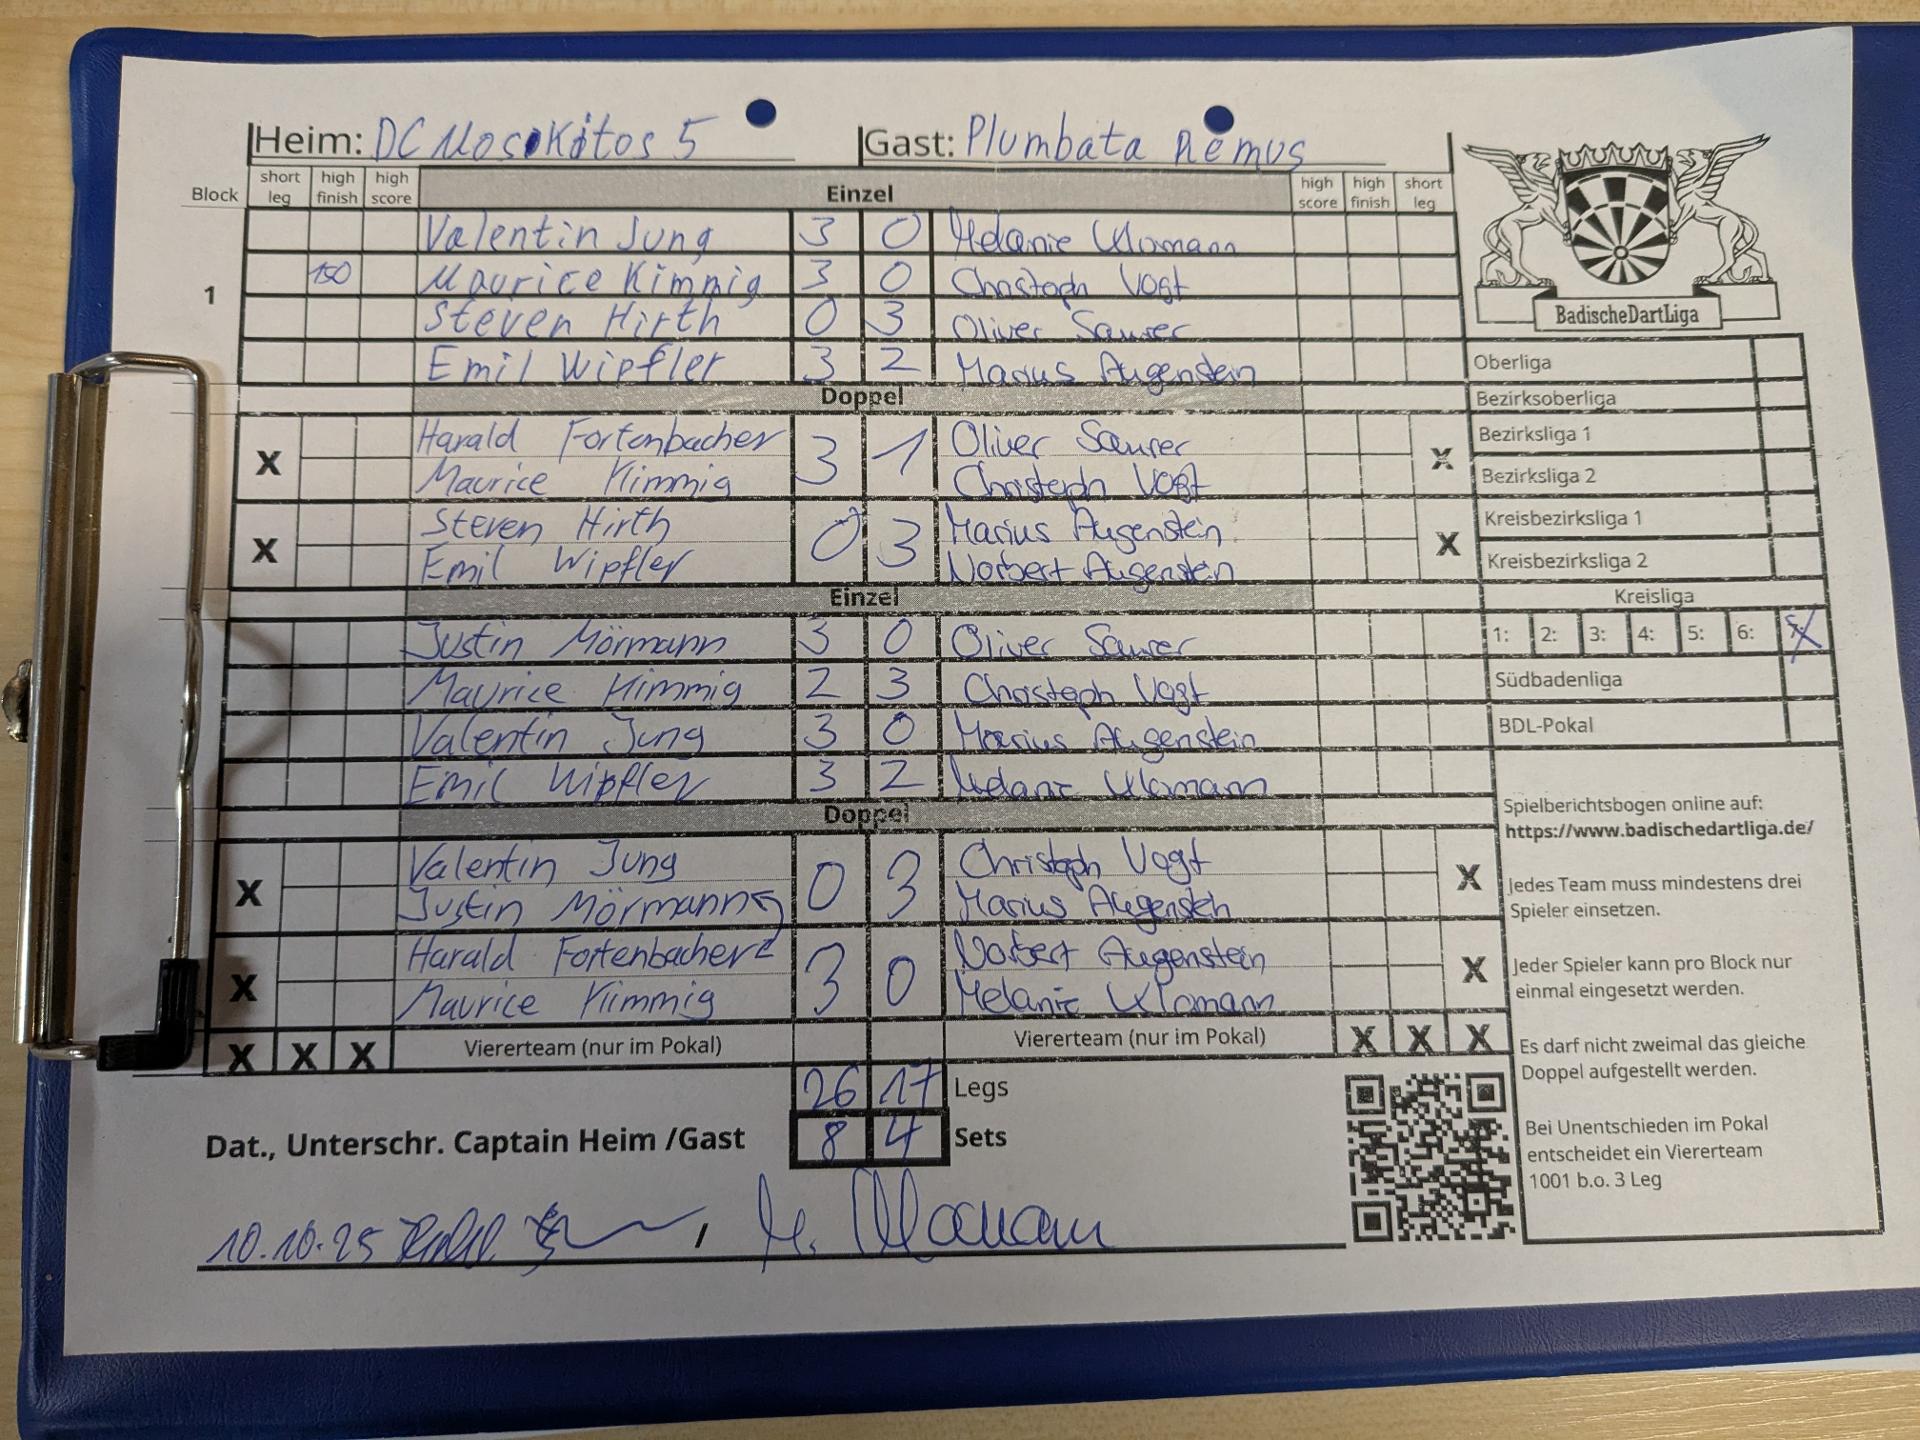 Heim: DC Mosikitos 5 Gast: Plumbata Remus
Block short leg high finish high score Einzel high score high finish short leg
Valentin Jung 3 0 Melanie
1 150 Maurice Kimmig 3 0 Christoph Vogt
Steven Hirth 0 3 Oliver Saurer
Emil Wipfler 3 2 Marius Augenstein
Doppel
X Harald Fortenbacher 3 1 Oliver Saurer X
Maurice Kimmig Christoph Vogt
X Steven Hirth 0 3 Marius Augenstein X
Emil Wipfler Norbert Augenstein
Einzel
Justin Mörmann 3 0 Oliver Saurer
Maurice Kimmig 2 3 Christoph Vogt
Valentin Jung 3 0 Marius Augenstein
Emil Wipfler 3 2
Doppel
X Valentin Jung 0 3 Christoph Vogt X
Justin Mörmann Marius Augenstein
X Harald Fortenbacher 3 0 Norbert Augenstein X
Maurice Kimmig Melanie
X X X Viererteam (nur im Pokal) Viererteam (nur im Pokal) X X X
26 17 Legs
Dat., Unterschr. Captain Heim /Gast 8 4 Sets
10.10.25
BadischeDartLiga
Oberliga
Bezirksoberliga
Bezirksliga 1
Bezirksliga 2
Kreisbezirksliga 1
Kreisbezirksliga 2
Kreisliga
1: 2: 3: 4: 5: 6:
Südbadenliga
BDL-Pokal
Spielberichtsbogen online auf:
https://www.badischedartliga.de/
Jedes Team muss mindestens drei
Spieler einsetzen.
Jeder Spieler kann pro Block nur
einmal eingesetzt werden.
Es darf nicht zweimal das gleiche
Doppel aufgestellt werden.
Bei Unentschieden im Pokal
entscheidet ein Viererteam
1001 b.o. 3 Leg